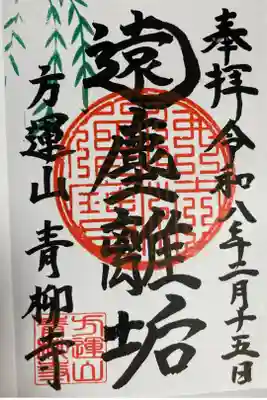 奉拝 令和八年二月十五日
遠塵離垢
万運山 青柳寺
万運山
青柳寺